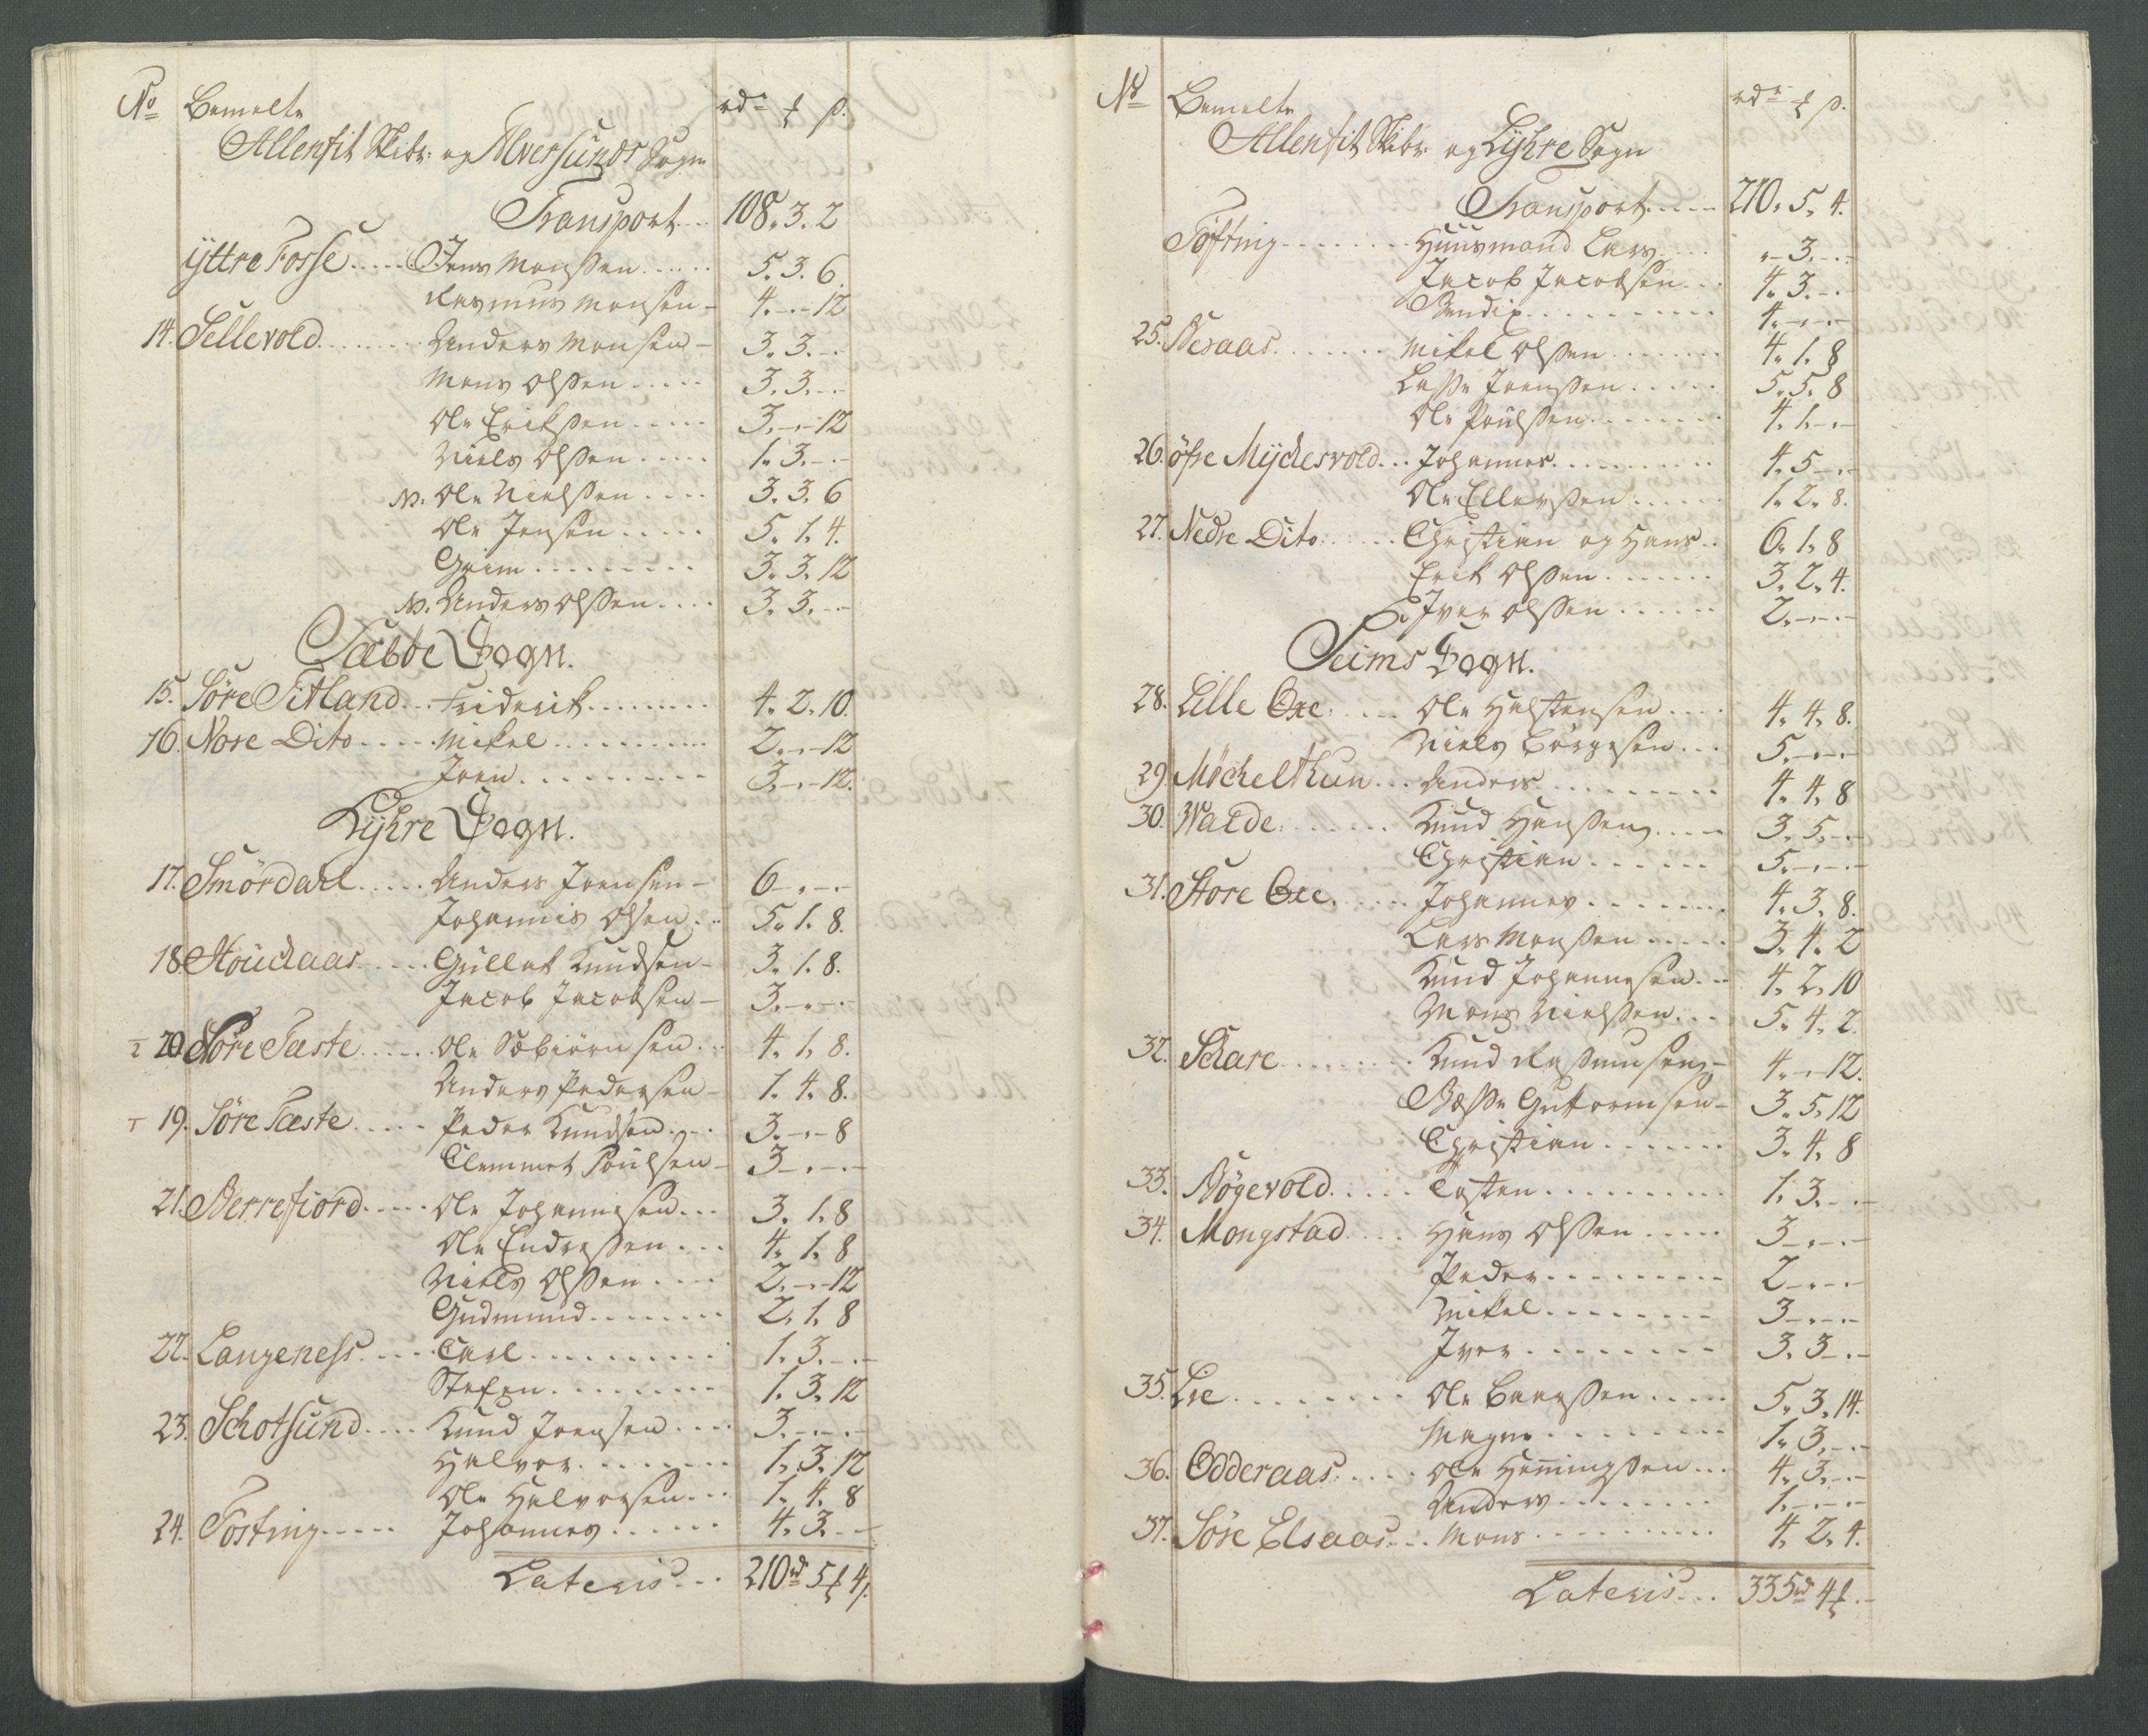 No Bemelte rdr ƶ ß.
Allenfit Skibr: og Alversunds Sogn
Transport... 108. 3. 2
ÿttre Fosse..... Jens Monssen...... 5. 3. 6
Rasmus Monsen- 4. -.- 12
14. Sellevold........ Anders Monsen- 3. 3. -.
Mons Olssen..... 3. 3. -.-
Ole Erikssen..... 3. -.- 12
Niels Olssen..... 1. 3. -.-
N. Ole Nielssen.... 3. 3. 6
Ole Jensen..... 5. 1. 4.
Grim......... 3. 3. 12
N. Anders Olssen.... 3. 3. -.-
Sæbde Sogn.
15. Søre Titland... Friderik........ 4. 2. 10.
16. Nore Dito..... Mikel.......... 2. -.- 12
Joen......... 3. -.- 12.
Lÿhre Sogn.
17. Smørdael..... Anders Joensen- 6 -.-.-
Johannis Olsen... 5. 1. 8.
18. Houdaas..... Gullak Knudsen- 3. 1. 8.
Jacob Jacobsen- 3. -.-.-
2 20. Nore Tæste..... Ole Søbiørnsen... 4. 1. 8.
Anders Pedersen- 1. 4. 8.
1 19. Søre Tæste..... Peder Knudsen.... 3. -.- 8
Clemmet Poulsen- 3 -.-.-
21. Berrefiord..... Ole Johannesen... 3. 1. 8
Ole Endressen... 4. 1. 8
Niels Olssen.... 2. -.- 12
Gudmund....... 2. 1. 8
22. Langeness..... Carl.......... 1. 3. -.-
Stefen........ 1. 3. 12
23. Schotsund.... Knud Joensen.... 3. -.-.-
Halvor........ 1. 3. 12
Ole Halvorsen... 1. 4. 8
24. Tosting..... Johannes...... 4. 3. -.-
Lateris... 210 rd 5 ƶ 4 ß.
No Bemelte rdr ƶ ß.
Allenfit Skibr: og Lÿhre Sogn
Transport..... 210. 5. 4.
Tøfting........ Huusmand Lars.... „- 3. -.-
Jacob Jacobsen... 4. 3. -.
Bendix.......... 4. -.-.-
25. Besaas....... Mikel Olssen....... 4. 1. 8
Lasse Joenssen..... 5. 5. 8
Ole Poulssen....... 4. 1. -.-
26. øfre Mÿchesvold... Johannes......... 4. 5 -.-
Ole Ellerssen...... 1. 2. 8.
27. Nedre Dito...... Christian og Hans.. 6. 1. 8
Erik Olssen....... 3. 2. 4.
Iver Olssen...... 2. -.-.-
Seims Sogn.
28. Lille Oxe..... Ole Halstensen.... 4. 4. 8.
Niels Børgesen... 5. -.-.-
29. Møchelthun... Anders......... 4. 4. 8
30. Walde....... Knud Hanssen..... 3. 5. -.-
Christian...... 5. -.-.-
31. Store Oxe..... Johannes........ 4. 3. 8.
Lars Monssen..... 3. 4. 2
Knud Johannesen... 4. 2. 10
Mons Nielssen... 5. 4. 2.
32. Schare........ Knud Rassmusen- 4. -.- 12.
Basse Guttormsen- 3. 5. 12
Christian....... 3. 4. 8
33. Bøgevold..... Tosten.......... 1. 3. -.-
34. Mongstad.... Hans Olssen..... 3 -.-.-
Peder......... 2 -.-.-
Mikel........ 3 -.-.-
Iver......... 3. 3 -.-
35. Lie........ Ole Baarssen..... 5. 3. 14.
Magne........ 1. 3. -.-
36. Odderaas..... Ole Hemingssen... 4. 3. -.-
Anders........ 1. -.-.-
37. Søre Elsaas... Mons.......... 4. 2. 4.
Lateris... 335 rd 4 ƶ .-